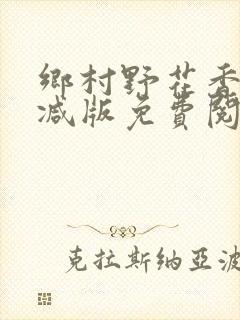 鄉村野花香
减版免費閱
克拉斯纳亚波